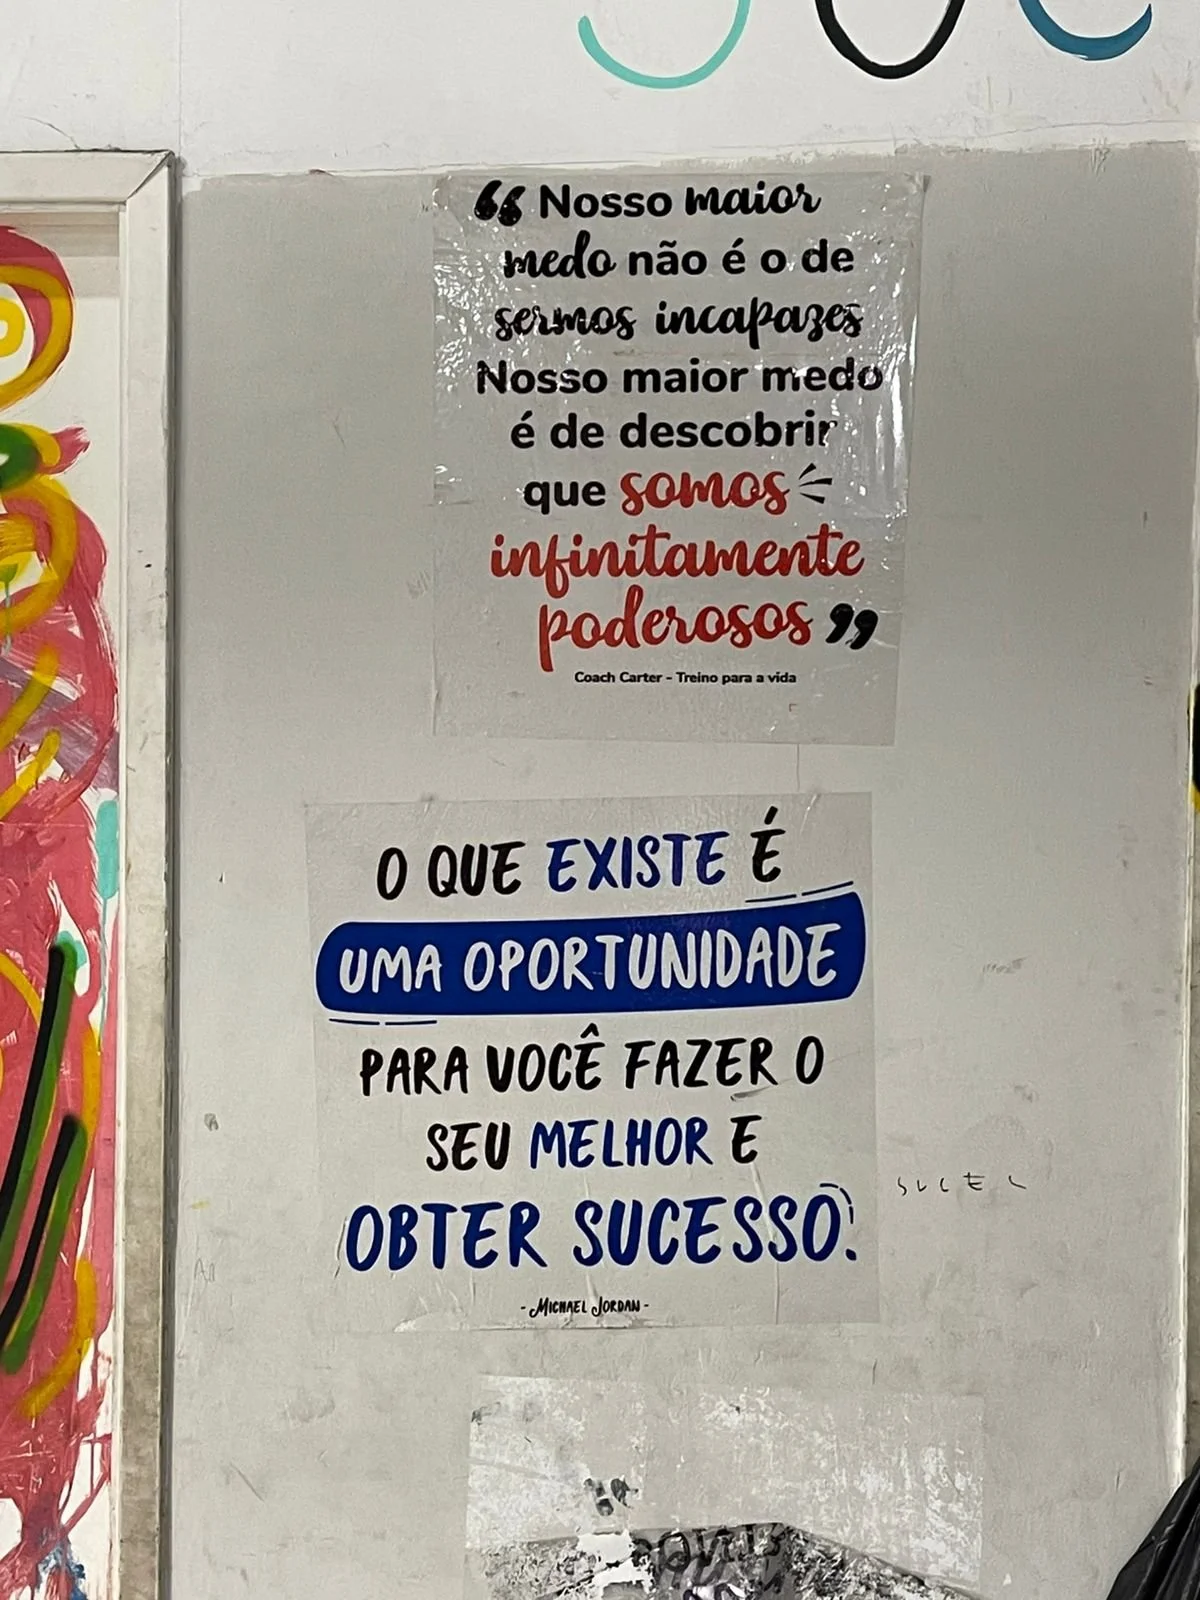 “ Nosso maior
medo não é o de
sermos incapazes
Nosso maior medo
é de descobrir
que somos
infinitamente
poderosos ”
Coach Carter - Treino para a vida
O QUE EXISTE É
UMA OPORTUNIDADE
PARA VOCÊ FAZER O
SEU MELHOR E
OBTER SUCESSO.
- MICHAEL JORDAN -